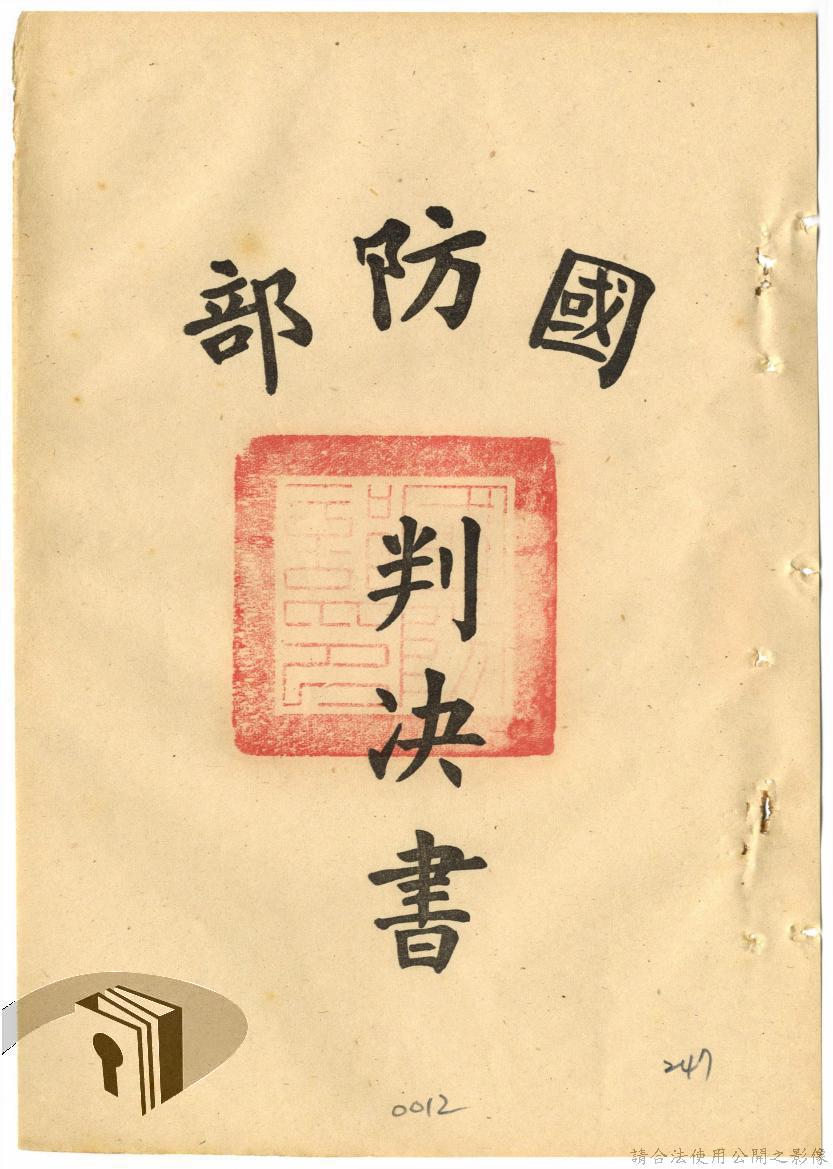 國防部
判決書
247
0012
請合法使用公開之影像